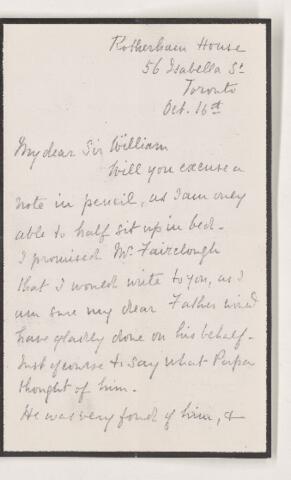 Rotherham House
56 Isabella St
Toronto
Oct. 16th
My dear Sir William
Will you excuse a
note in pencil, as I am only
able to half sit up in bed.
I promised Mr. Fairclough
that I would write to you, as I
am sure my dear Father would
have gladly done on his behalf.
Just of course to say what Papa
thought of him.
He was very fond of him, &